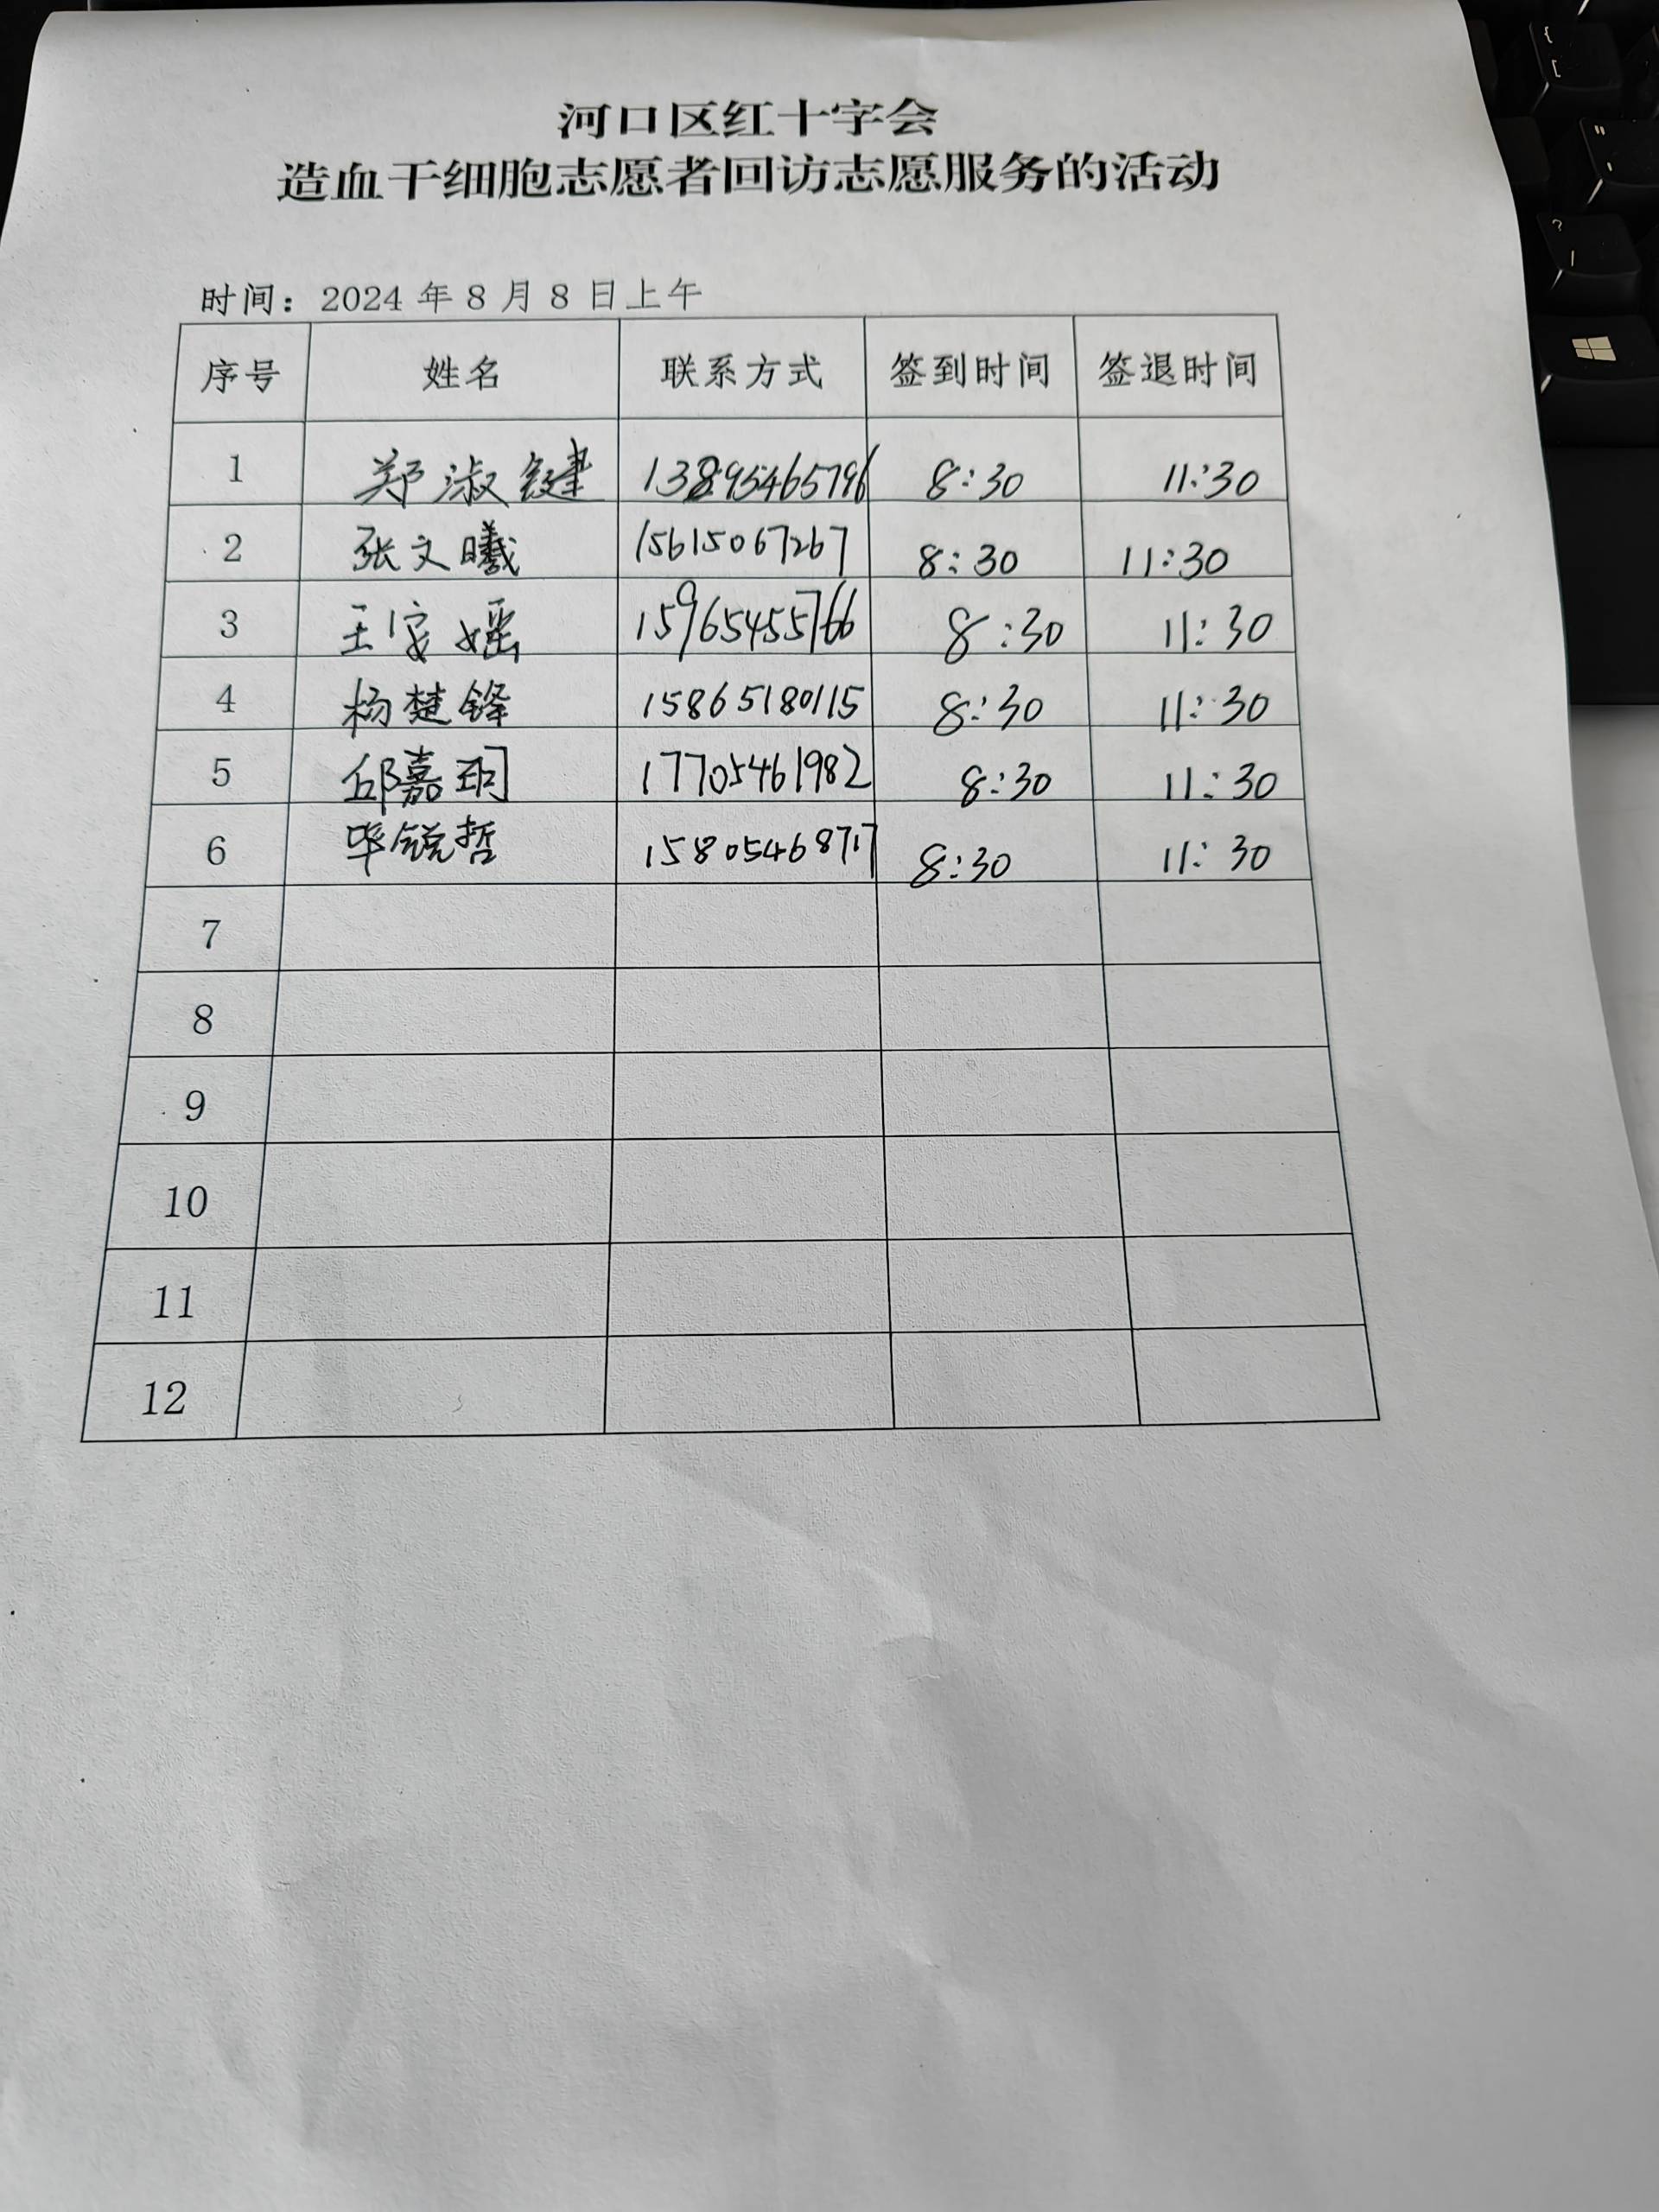 河口区红十字会
造血干细胞志愿者回访志愿服务的活动
时间：2024年8月8日上午
序号 姓名 联系方式 签到时间 签退时间
1 郑淑键 8:30 11:30
2 张文曦 15615067267 8:30 11:30
3 王 瑶 15965455766 8:30 11:30
4 杨楚锋 15865180115 8:30 11:30
5 邱嘉玥 17705461982 8:30 11:30
6 毕锐哲 15805468717 8:30 11:30
7
8
9
10
11
12